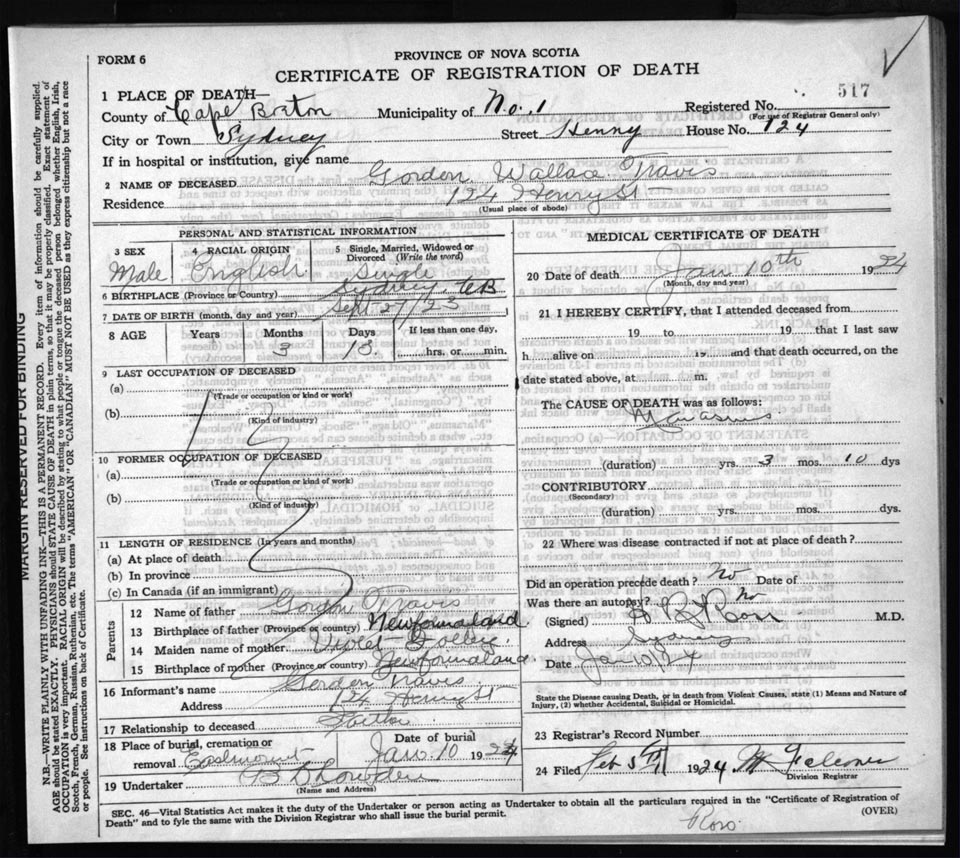 FORM 6
PROVINCE OF NOVA SCOTIA
CERTIFICATE OF REGISTRATION OF DEATH
517
1 PLACE OF DEATH—
County of Cape Breton Municipality of No. 1 Registered No.
(For use of Registrar General only)
City or Town Sydney Street Henry House No. 124
If in hospital or institution, give name
2 NAME OF DECEASED Gordon Wallace Travis
Residence 124 Henry St
(Usual place of abode)
PERSONAL AND STATISTICAL INFORMATION
3 SEX 4 RACIAL ORIGIN 5 Single, Married, Widowed or Divorced (Write the word)
Male English Single
6 BIRTHPLACE (Province or Country) Sydney, CB
7 DATE OF BIRTH (month, day and year) Sept 27/23
8 AGE Years Months Days If less than one day,
3 13 hrs. or min.
9 LAST OCCUPATION OF DECEASED
(a)
(Trade or occupation or kind of work)
(b)
(Kind of industry)
10 FORMER OCCUPATION OF DECEASED
(a)
(Trade or occupation or kind of work)
(b)
(Kind of industry)
11 LENGTH OF RESIDENCE (In years and months)
(a) At place of death
(b) In province
(c) In Canada (if an immigrant)
Parents
12 Name of father Gordon Travis
13 Birthplace of father (Province or country) Newfoundland
14 Maiden name of mother Violet
15 Birthplace of mother (Province or country) Newfoundland
16 Informant's name Gordon Travis
Address 124 Henry St
17 Relationship to deceased Father
18 Place of burial, cremation or removal Eastmount Date of burial Jan. 10 1924
19 Undertaker
(Name and Address)
MEDICAL CERTIFICATE OF DEATH
20 Date of death Jan 10th 1924
(Month, day and year)
21 I HEREBY CERTIFY, that I attended deceased from
19 to 19 that I last saw
h alive on 19 and that death occurred, on the
date stated above, at m.
The CAUSE OF DEATH was as follows:
(duration) yrs. 3 mos. 10 dys
CONTRIBUTORY
(Secondary)
(duration) yrs. mos. dys.
22 Where was disease contracted if not at place of death?
Did an operation precede death? No Date of
Was there an autopsy? No
(Signed) M.D.
Address Sydney
Date Jan 10/24
State the Disease causing Death, or in death from Violent Causes, state (1) Means and Nature of
Injury, (2) whether Accidental, Suicidal or Homicidal.
23 Registrar's Record Number
24 Filed Feb 5 1924
Division Registrar
SEC. 46—Vital Statistics Act makes it the duty of the Undertaker or person acting as Undertaker to obtain all the particulars required in the "Certificate of Registration of
Death" and to fyle the same with the Division Registrar who shall issue the burial permit.
(OVER)
MARGIN RESERVED FOR BINDING
N.B.—WRITE PLAINLY WITH UNFADING INK—THIS IS A PERMANENT RECORD. Every item of information should be carefully supplied.
AGE should be stated EXACTLY. PHYSICIANS should STATE CAUSE OF DEATH in plain terms, so that it may be properly classified. Exact statement of
OCCUPATION is very important. RACIAL ORIGIN will be described by stating to what people or tongue the deceased person belonged whether English, Irish,
Scotch, French, German, Russian, Ruthenian, etc. The terms "AMERICAN" OR "CANADIAN" MUST NOT BE USED as they express citizenship but not a race
or people. See instructions on back of Certificate.